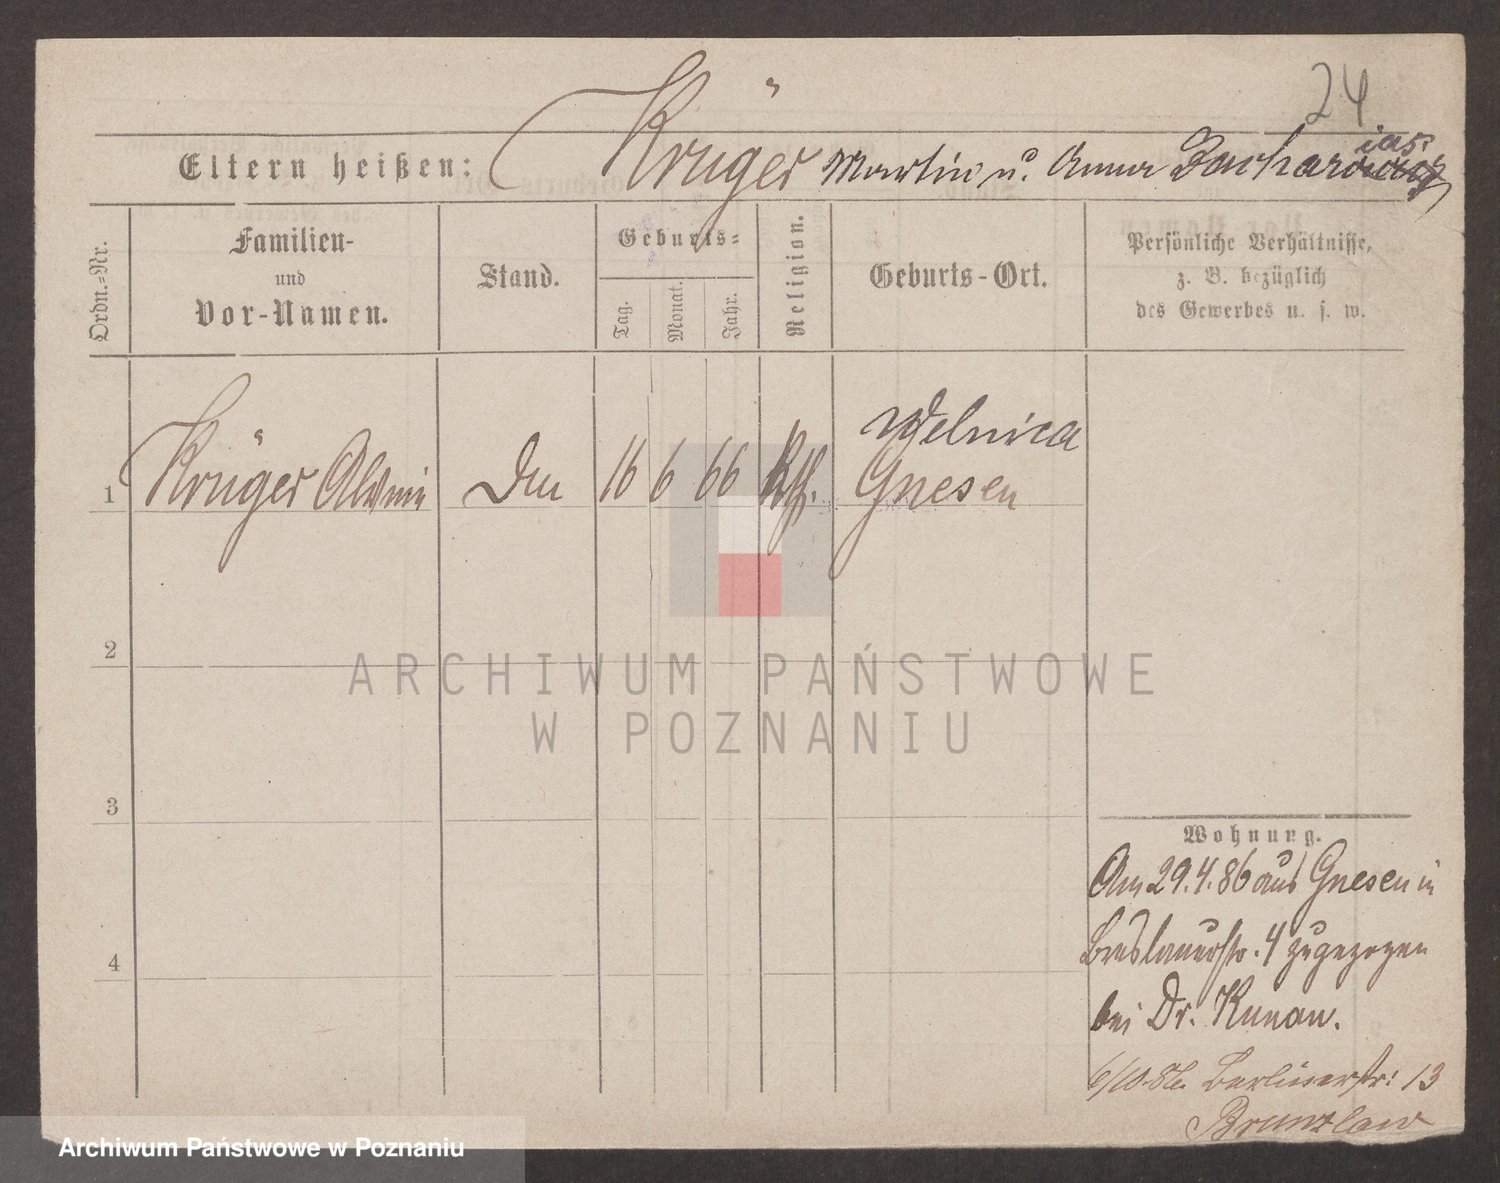 24
Krüger
Eltern heißen: Martin u. Anna Zacharias
Ordn.=Nr.
Familien-
und
Vor-Namen.
Stand.
Geburts=
Tag.
Monat.
Jahr.
Religion.
Geburts-Ort.
Persönliche Verhältnisse,
z. B. bezüglich
des Gewerbes u. s. w.
Welnica
1 Krüger 16 6 66 Kth. Gnesen
2
3
4
ARCHIWUM PAŃSTWOWE
W POZNANIU
Wohnung.
Am 29.4.86 aus Gnesen in
Breslauerstr. 4 zugezogen
bei Dr. Kunau.
6/10.86. Berlinerstr: 13
Brunzlow
Archiwum Państwowe w Poznaniu